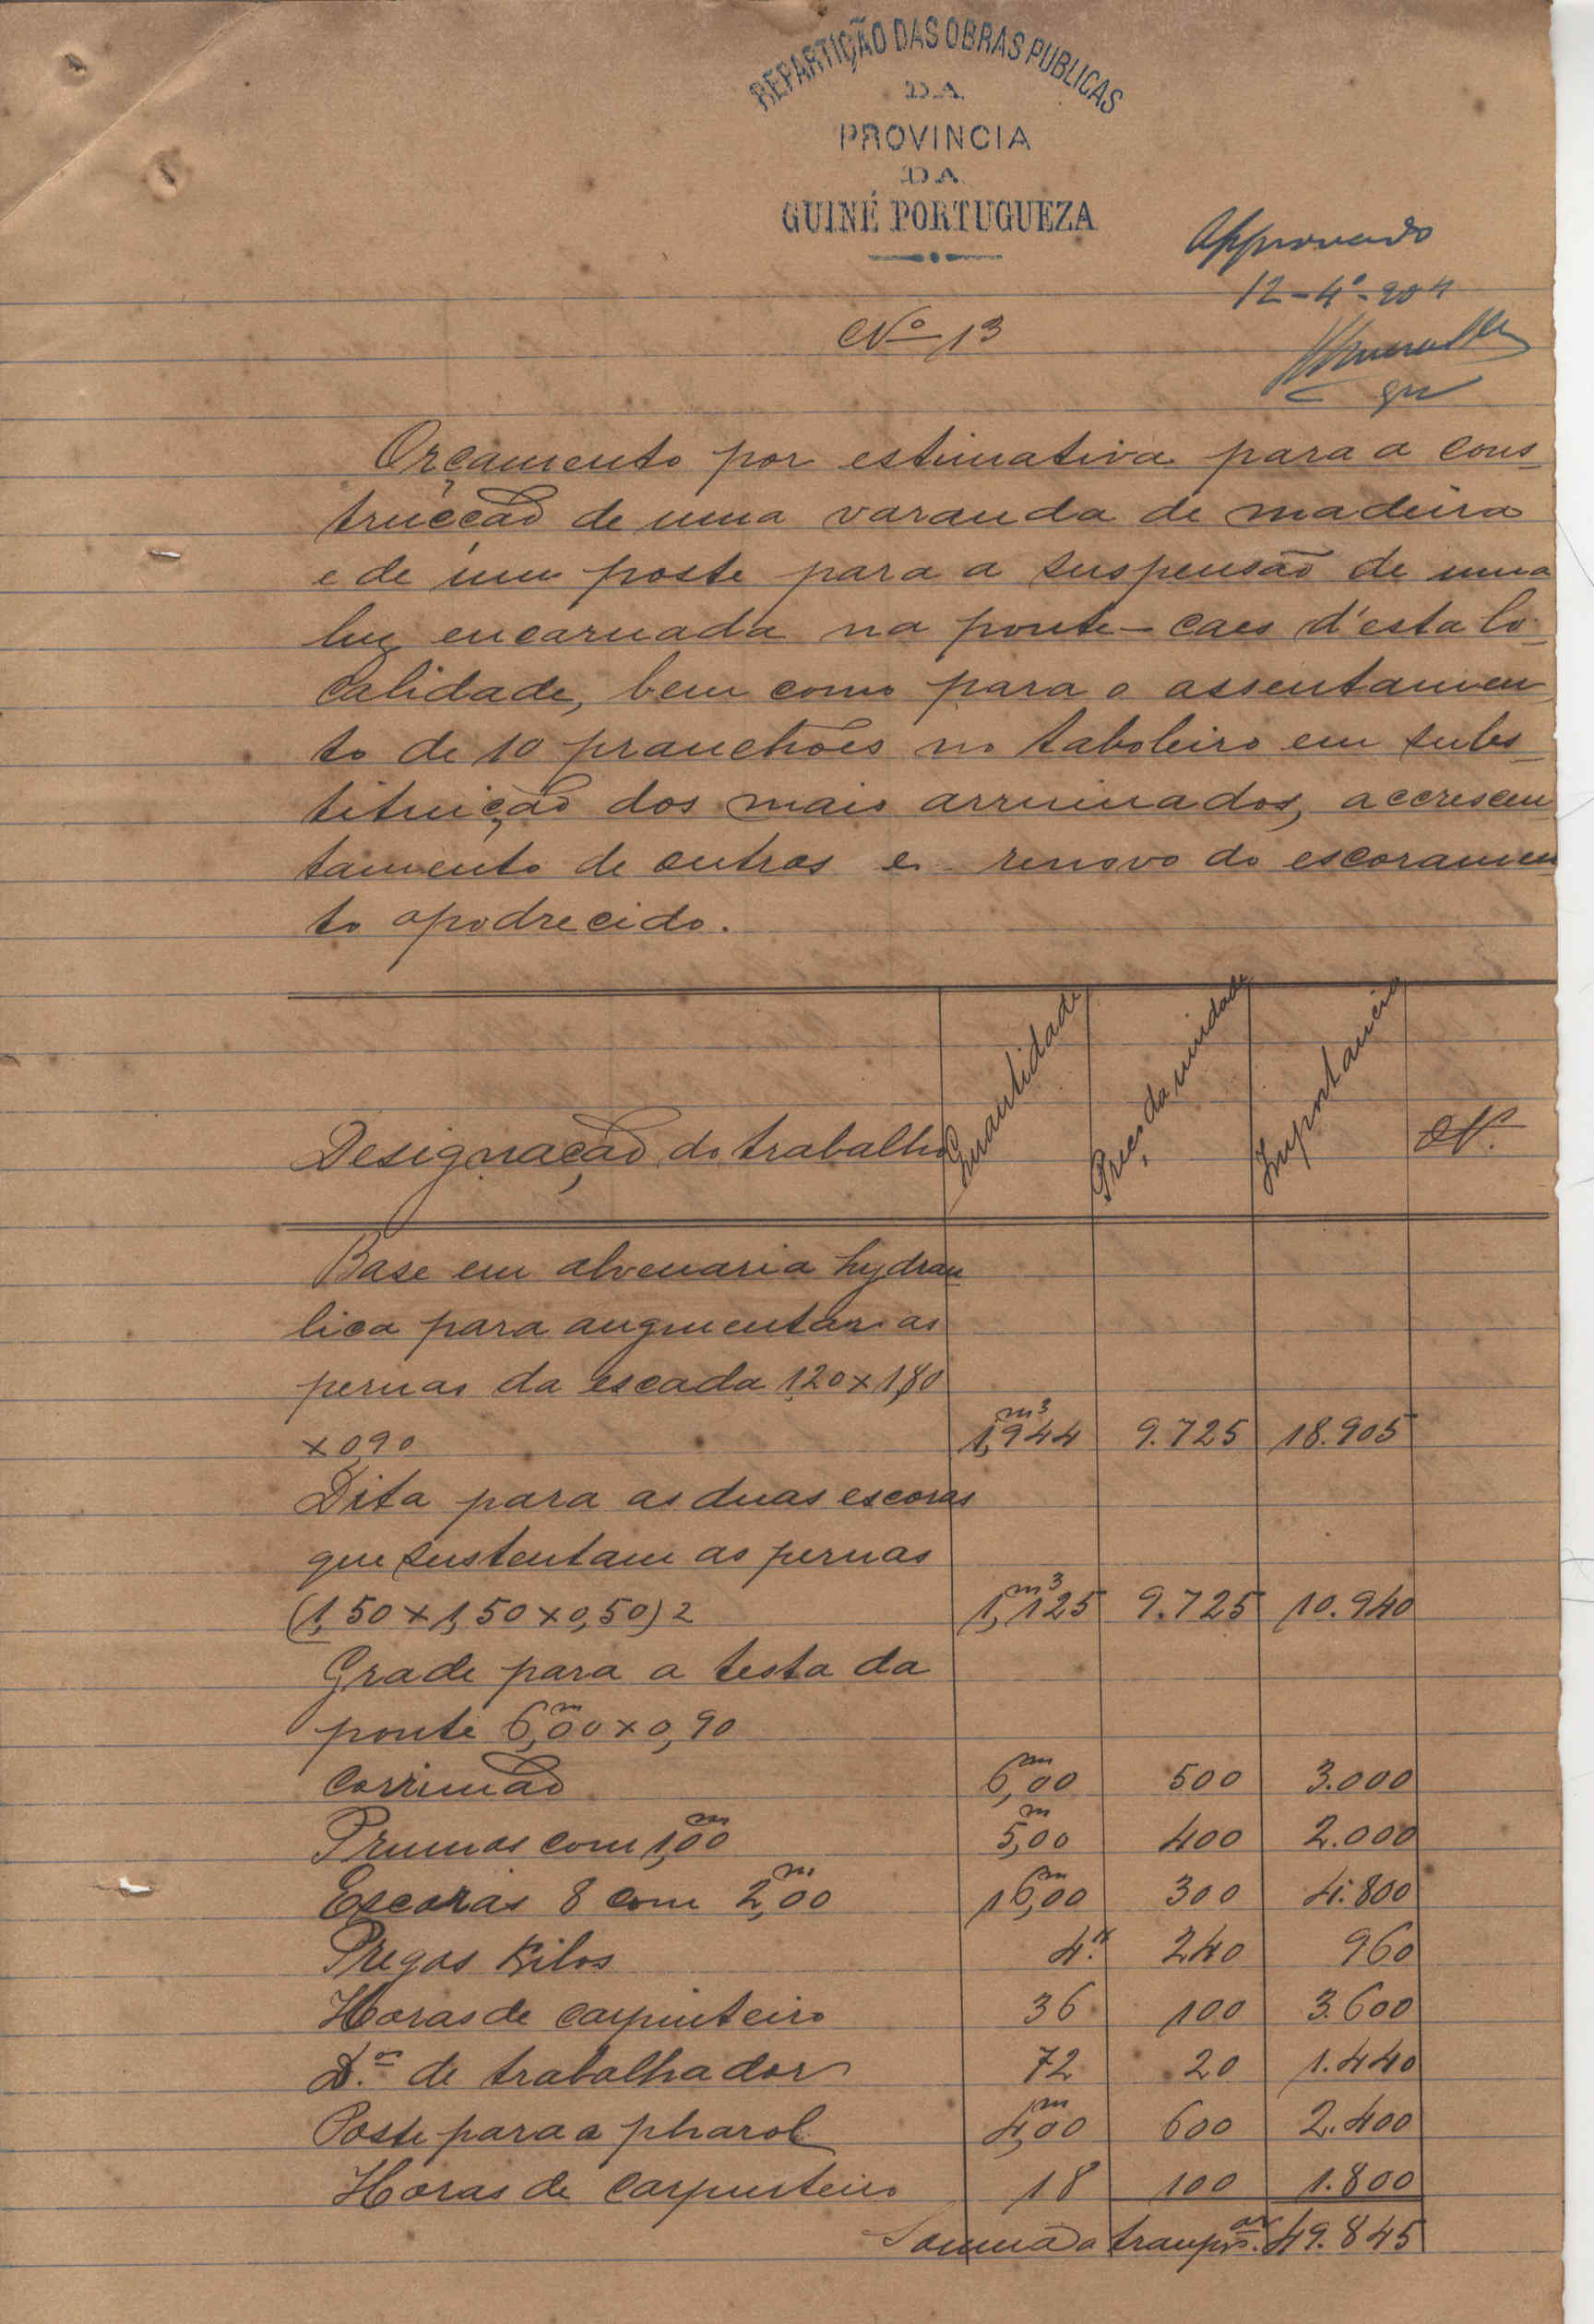 REPARTIÇÃO DAS OBRAS PUBLICAS
DA
PROVINCIA
DA
GUINÉ PORTUGUEZA
Approvado
12-4º-904
Nº 13
Orçamento por estimativa para a cons-
trucção de uma varanda de madeira
e de um poste para a suspensão de uma
luz encarnada na ponte-caes d'esta lo-
calidade, bem como para o assentamen
to de 10 pranchões no taboleiro em subs-
tituição dos mais arruinados, accrescen
tamento de outros e renovo do escoramen
to apodrecido.
Designação do trabalho Quantidade Preço da unidade Importancia N.
Base em alvenaria hydrau
lica para augmentar as
pernas da escada 1,20 x 1,80
x 0,90 1,944 m3 9.725 18.905
Dita para as duas escoras
que sustentam as pernas
(1,50 x 1,50 x 0,50) 2 1,125 m3 9.725 10.940
Grade para a testa da
ponte 6,00 m x 0,90
Corrimão 6,00 m 500 3.000
Prumos com 1,00 m 5,00 m 400 2.000
Escoras 8 com 2,00 m 16,00 m 300 4.800
Pregos Kilos 4.k 240 960
Horas de carpinteiro 36 100 3.600
D.as de trabalhador 72 20 1.440
Poste para o pharol 4,00 m 600 2.400
Horas de carpinteiro 18 100 1.800
Somma a transpor. 49.845